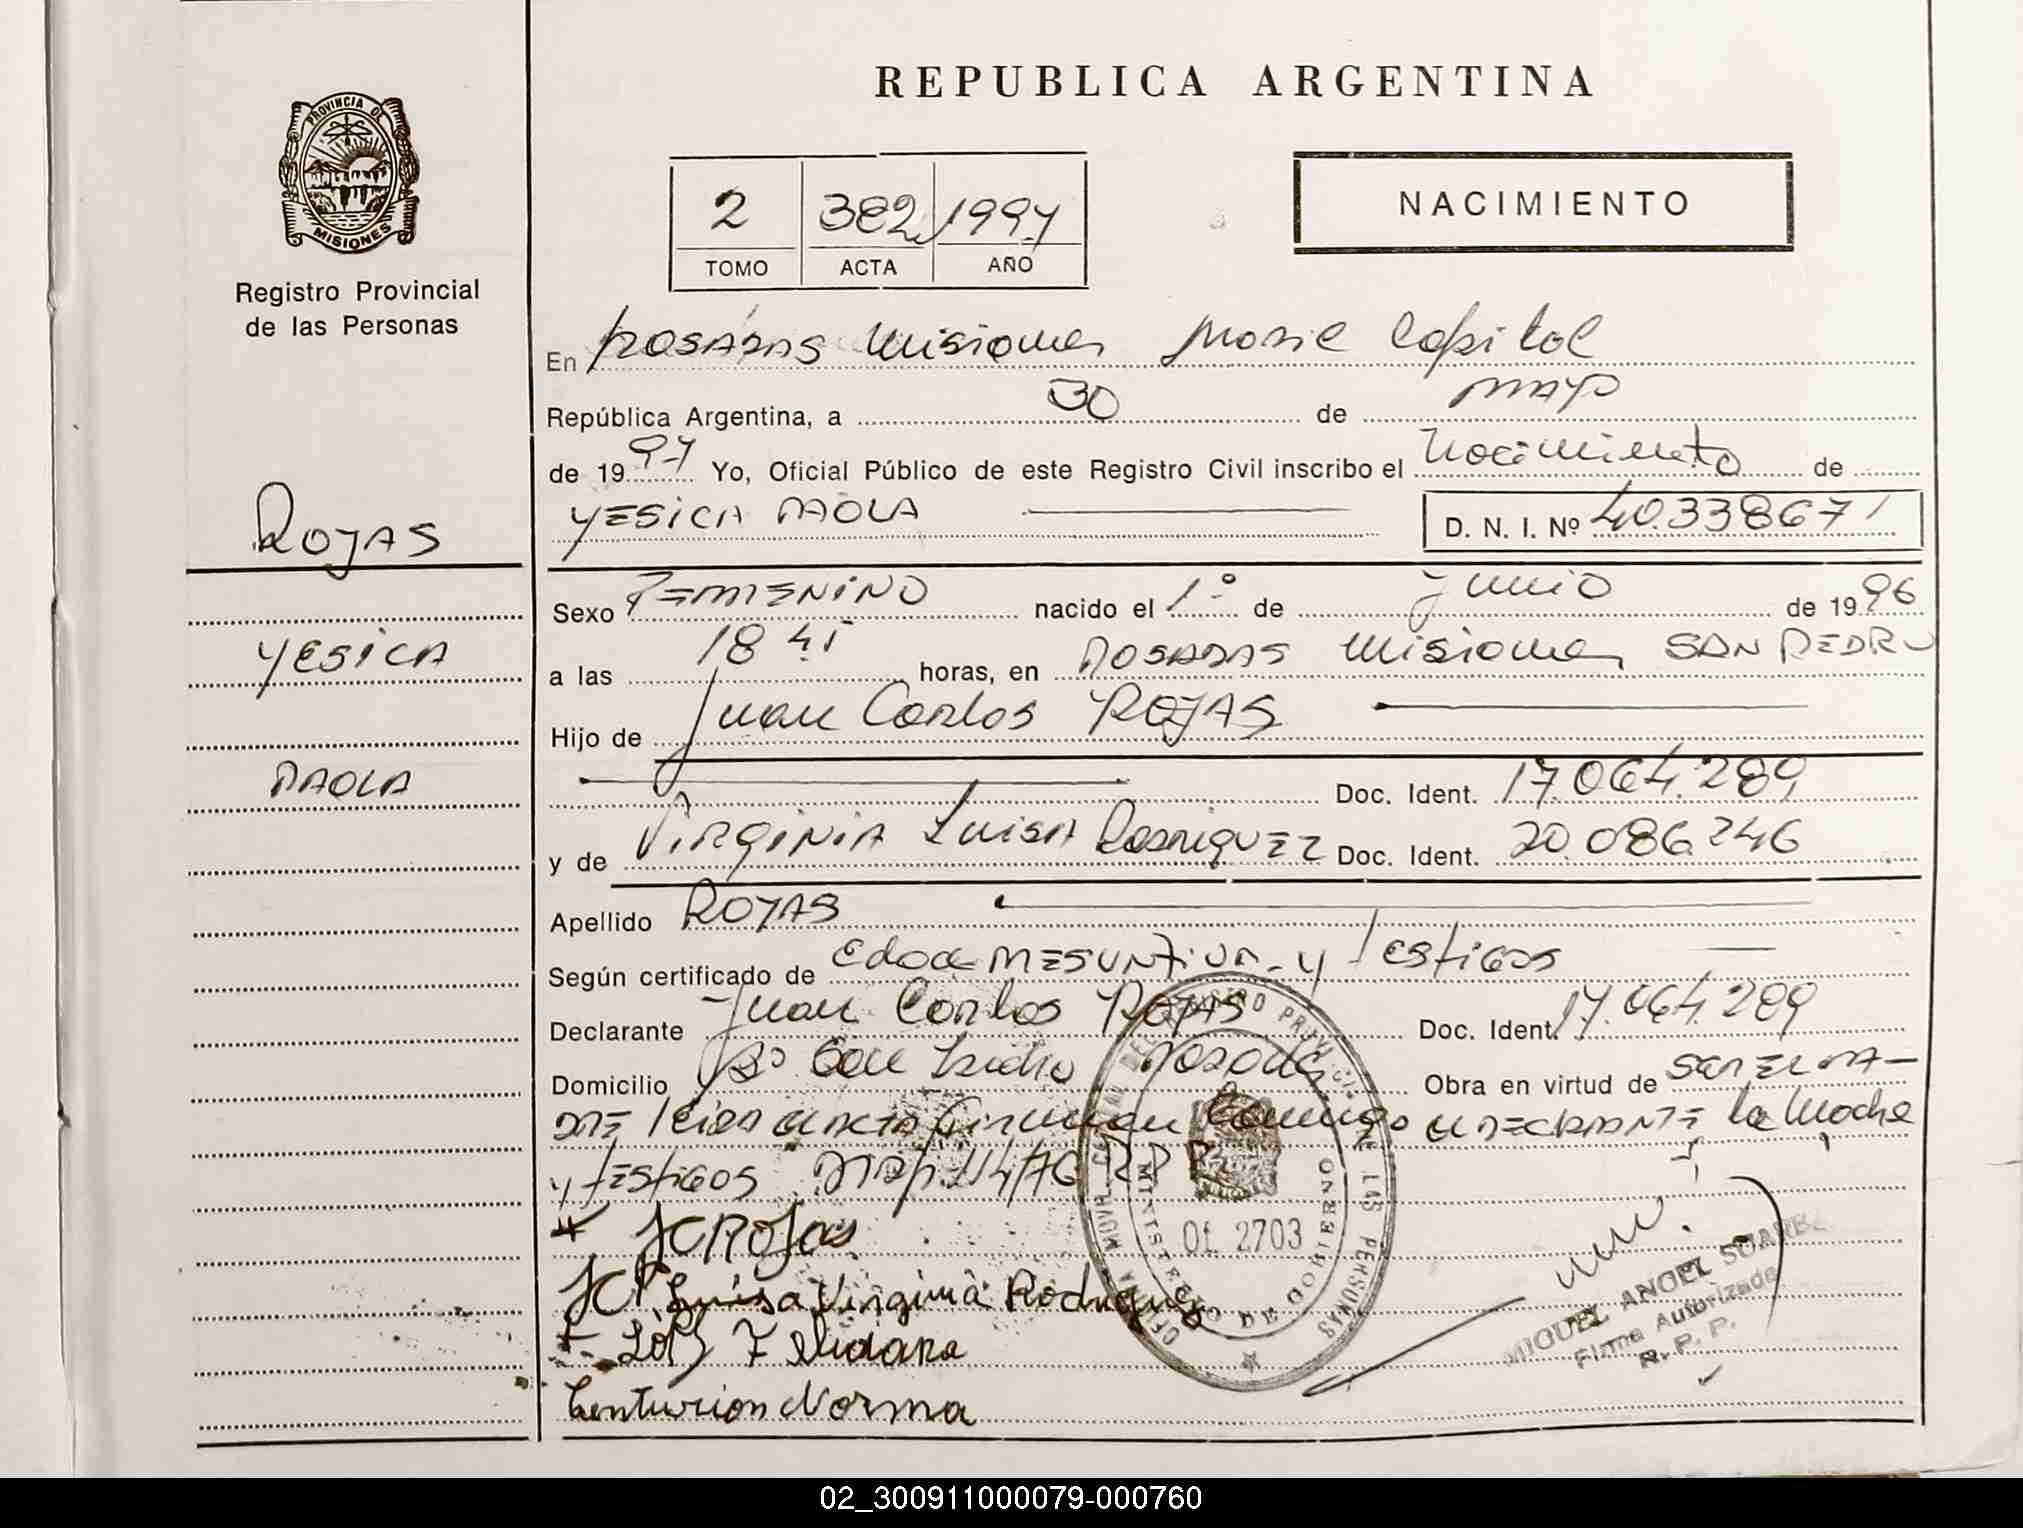 REPUBLICA ARGENTINA
PROVINCIA DE
MISIONES
Registro Provincial
de las Personas
2 382 1997
TOMO ACTA AÑO
NACIMIENTO
En Posadas Misiones Capital
República Argentina, a 30 de mayo
de 1997 Yo, Oficial Público de este Registro Civil inscribo el Nacimiento de
YESICA PAOLA D. N. I. Nº 40.338671
ROJAS
YESICA
PAOLA
Sexo FEMENINO nacido el 1º de Junio de 1996
a las 18 45 horas, en POSADAS Misiones SAN PEDRO
Hijo de Juan Carlos ROJAS
Doc. Ident. 17.064.289
y de VIRGINIA Luisa Rodriguez Doc. Ident. 20.086.246
Apellido ROJAS
Según certificado de Edad PRESUNTIVA y Testigos
Declarante Juan Carlos ROJAS Doc. Ident. 17.064.289
Domicilio Bº San Isidro Posadas Obra en virtud de
Firman Conmigo el DECLARANTE la Madre
y TESTIGOS
JCROJas
Luisa Virginia Rodriguez
Centurion Norma
OFICINA MOVIL
REGISTRO PROVINCIAL DE LAS PERSONAS
MINISTERIO DE GOBIERNO
01 2703
MIGUEL ANGEL SUAREZ
Firma Autorizada
R. P. P.
02_300911000079-000760